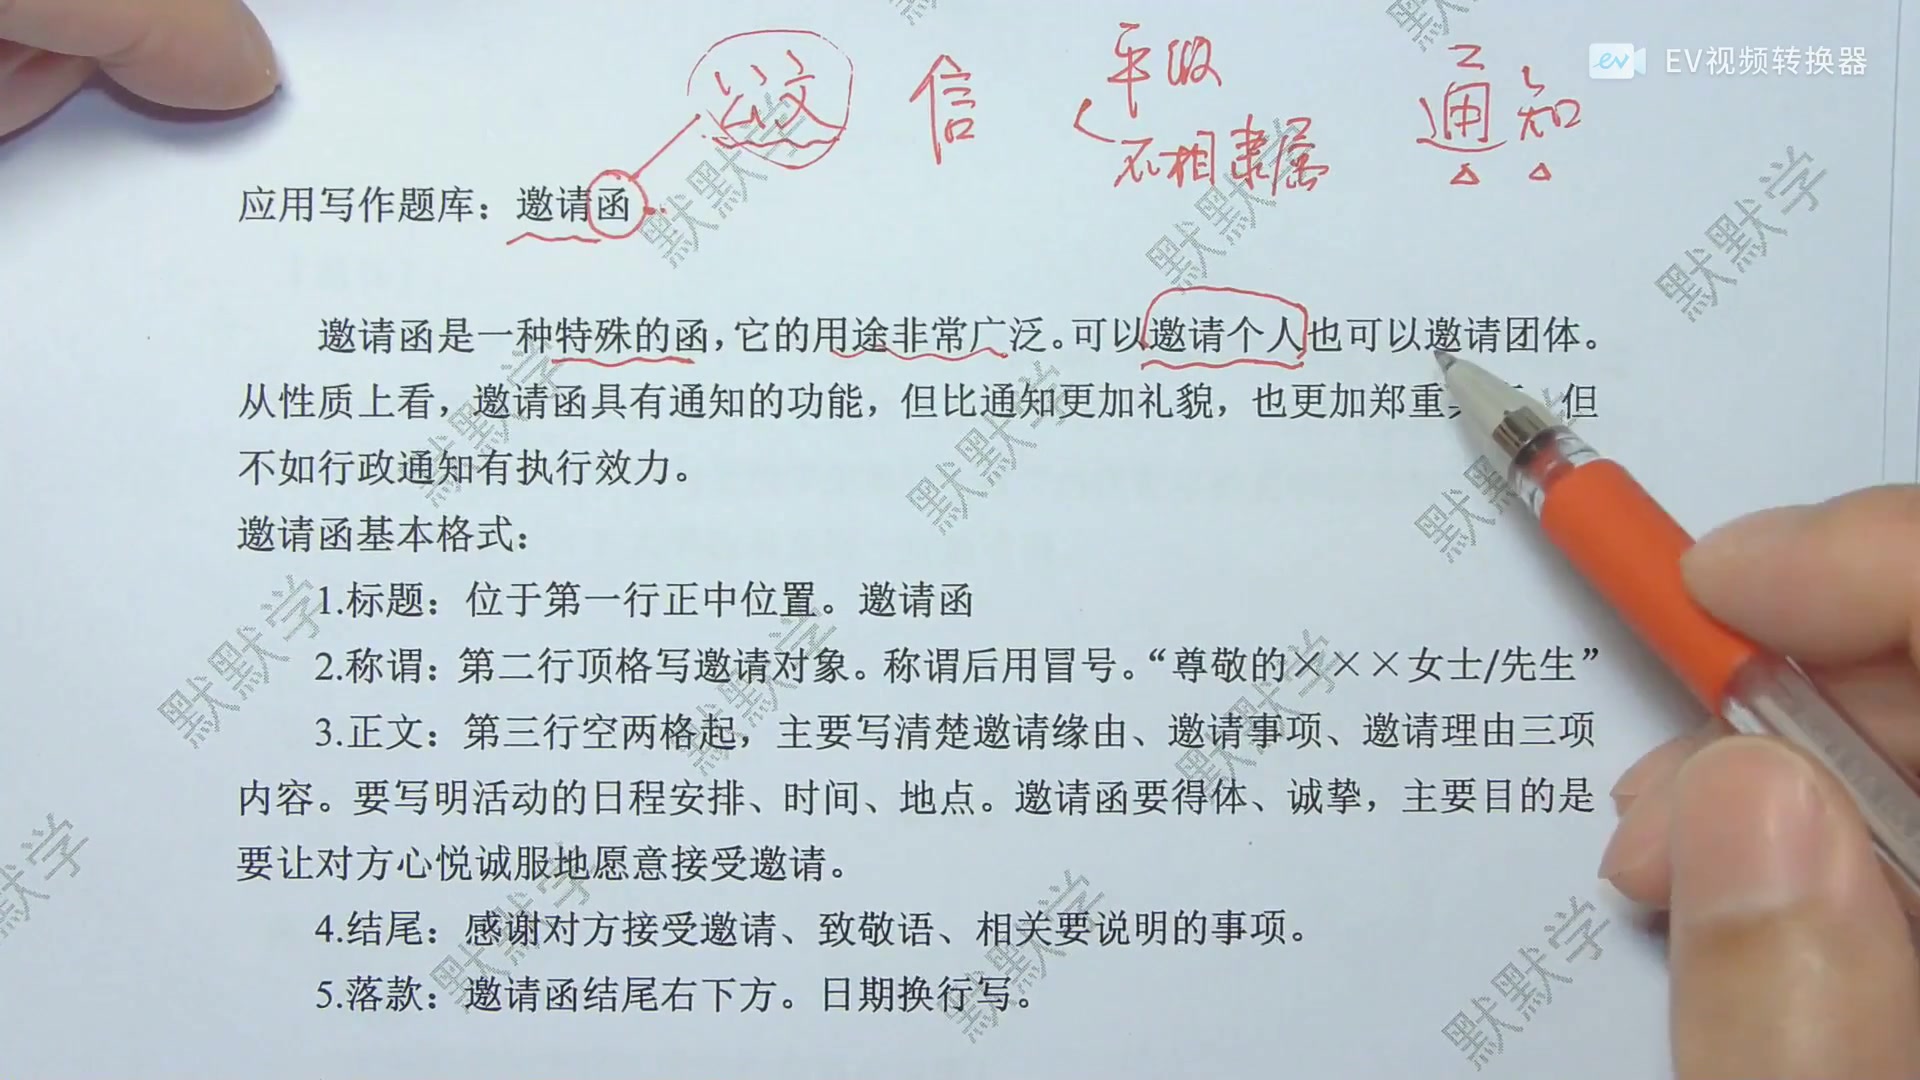 EV视频转换器
公文 信 平级 通知
不相隶属
应用写作题库：邀请函
邀请函是一种特殊的函，它的用途非常广泛。可以邀请个人也可以邀请团体。
从性质上看，邀请函具有通知的功能，但比通知更加礼貌，也更加郑重 但
不如行政通知有执行效力。
邀请函基本格式：
1.标题：位于第一行正中位置。邀请函
2.称谓：第二行顶格写邀请对象。称谓后用冒号。“尊敬的×××女士/先生”
3.正文：第三行空两格起，主要写清楚邀请缘由、邀请事项、邀请理由三项
内容。要写明活动的日程安排、时间、地点。邀请函要得体、诚挚，主要目的是
要让对方心悦诚服地愿意接受邀请。
4.结尾：感谢对方接受邀请、致敬语、相关要说明的事项。
5.落款：邀请函结尾右下方。日期换行写。
默默学